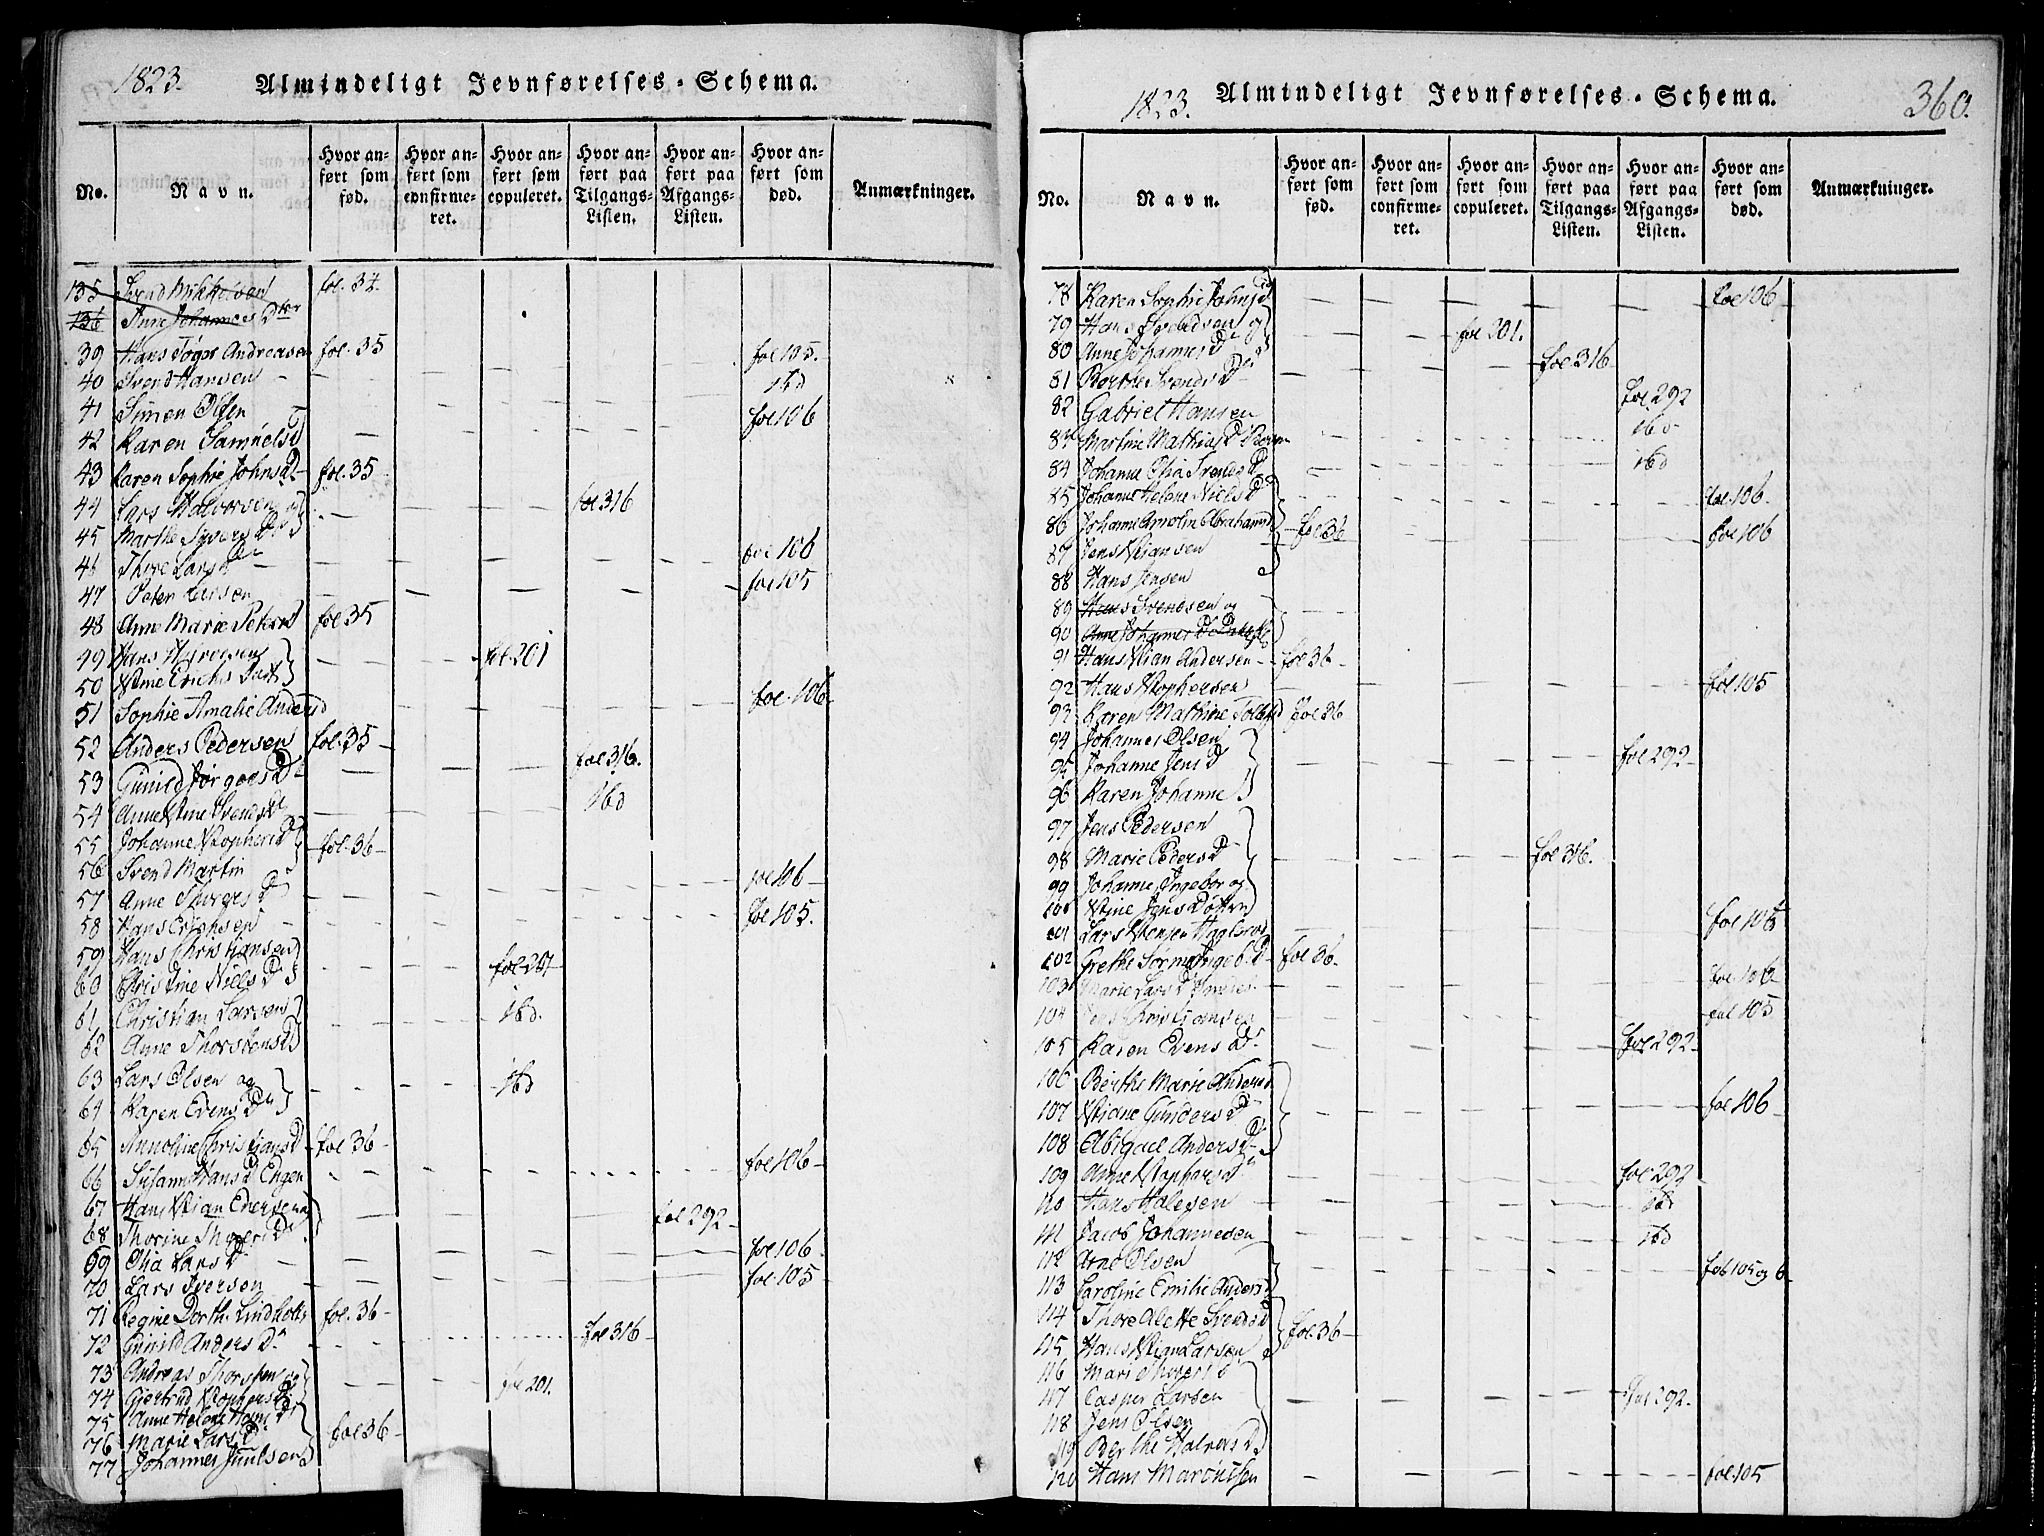 1823. Almindeligt Jevnførelses-Schema.
No. Navn. Hvor anført som fød. Hvor anført som confirmeret. Hvor anført som copuleret. Hvor anført paa Tilgangs-Listen. Hvor anført paa Afgangs-Listen. Hvor anført som død. Anmærkninger.
135 Svend Mikkelsen fol. 34.
136 Anne Johannes Dter
39 Hans Andreasen fol. 35
40 Svend Hansen - fol 105.
41 Simen Olsen ibd
42 Karen Samuels D fol 106
43 Karen Sophie Johns D fol. 35
44 Lars Halvorsen og
45 Marthe Syvers D fol 316
46 Thore Lars D - fol 106
47 Peter Larsen fol 105
48 Anne Marie Peters D fol 35
49 Hans
50 Stine Erichs Datt fol. 201
51 Sophie Amalie Anders D fol. 106
52 Anders Pedersen fol. 35
53 Gunild Jørgens D fol 316.
54 Anne Stine Svends D ibd
55 Johanne D fol. 36
56 Svend Martin
57 Anne D fol 106
58 Hans Erichsen fol 105.
59 Hans Christiansen
60 Christine Niels D fol 201
61 Christian Larsen
62 Anne Thorstens D ibd.
63 Lars Olsen og
64 Karen Evens D ibd
65 Annoline Christians D fol 36
66 Susanne Hans D Engen fol 106
67 Hans Xtian Evensen
68 Thorine D fol 292
69 Olia Lars D fol 106
70 Lars Iversen fol. 105
71 Regine Dorth. Lindholm fol. 36
72 Gunild Anders D fol 316
73 Andreas Thorsten og
74 Gjertrud D fol 201.
75 Anne Helene Hans D
76 Marie Lars D fol 36
77 Johannes Juulsen
1823. Almindeligt Jevnførelses-Schema. 360.
No. Navn. Hvor anført som fød. Hvor anført som confirmeret. Hvor anført som copuleret. Hvor anført paa Tilgangs-Listen. Hvor anført paa Afgangs-Listen. Hvor anført som død. Anmærkninger.
78 Karen Sophie Johns D fol 106
79 Hans Svendsen og
80 Anne Johannes D fol 201.
81 Berthe Svends D fol 316
82 Gabriel Hansen fol 292
83 Martine Mathias D ibd
84 Johanne Olia Svends D ibd
85 Johanne Helene Niels D fol 106
86 Johanne Arnolin Abrahams D fol 36 fol 106
87 Jens Xtiansen
88 Hans Jensen
89 Hans Svendsen og
90 Anne Johannes D
91 Hans Xtian Andersen fol 36
92 Hans Xtophersen fol 105
93 Karen Mathine fol 36
94 Johannes Olsen
95 Johanne Jens D fol 292
96 Karen Johanne
97 Jens Pedersen
98 Marie Peders D fol 316.
99 Johanne Ingebor og
100 Stine Jens Døttre
101 Lars fol 105
102 Grethe D fol 36.
103 Marie Lars D fol 106
104 Christiansen fol 105
105 Karen Evens D fol 292
106 Berthe Marie Anders D
107 Xtiane Gunders D fol 106
108 Abigael Anders D
109 Anne Xtophers D fol 292
110 Hans Halesen ibd
111 Jacob Johannesen ibd
112 Arne Olsen
113 Caroline Emilie Anders D fol 105 og 6
114 Thore Alette Svends D
115 Hans Xtian Larsen fol. 36
116 Mari D
117 Casper Larsen fol 292.
118 Jens Olsen
119 Berthe Halvors D
120 Hans fol. 105